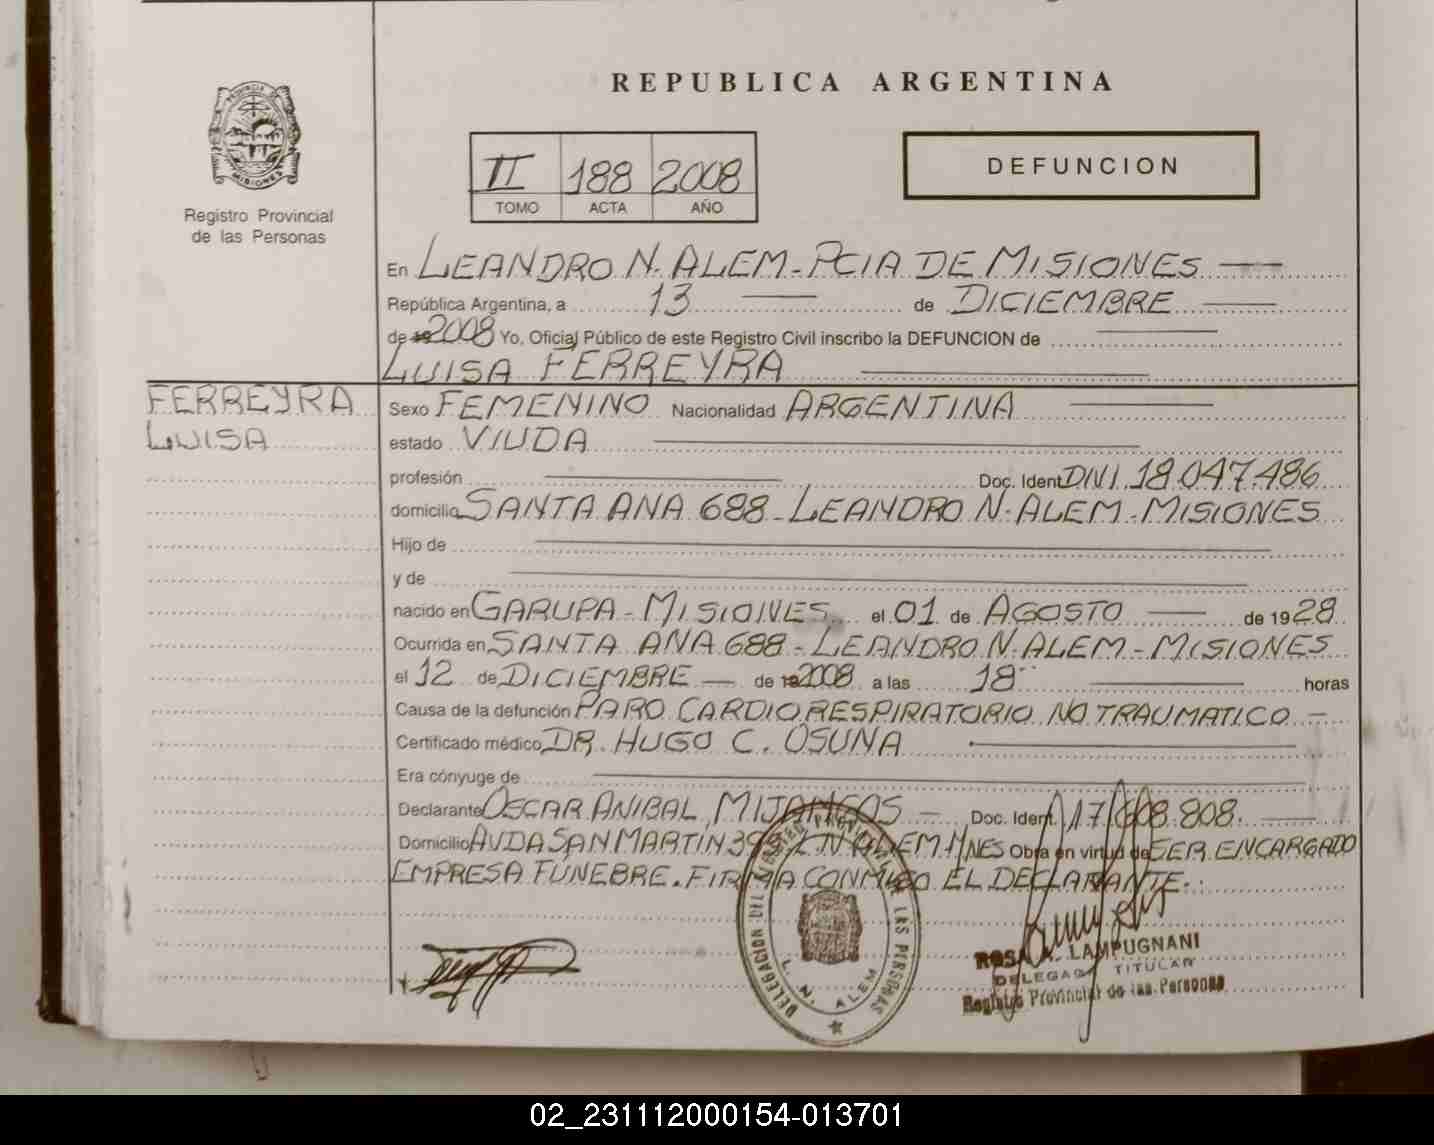 REPUBLICA ARGENTINA
PROVINCIA DE
MISIONES
Registro Provincial
de las Personas
II 188 2008
TOMO ACTA AÑO
DEFUNCION
En LEANDRO N. ALEM - PCIA DE MISIONES
República Argentina, a 13 de DICIEMBRE
de 2008 Yo, Oficial Público de este Registro Civil inscribo la DEFUNCION de
LUISA FERREYRA
FERREYRA
LUISA
Sexo FEMENINO Nacionalidad ARGENTINA
estado VIUDA
profesión Doc. Ident DNI 18.047.486
domicilio SANTA ANA 688 - LEANDRO N. ALEM - MISIONES
Hijo de
y de
nacido en GARUPA - MISIONES el 01 de AGOSTO de 1928
Ocurrida en SANTA ANA 688 - LEANDRO N. ALEM - MISIONES
el 12 de DICIEMBRE de 2008 a las 18 horas
Causa de la defunción PARO CARDIORESPIRATORIO NO TRAUMATICO
Certificado médico DR. HUGO C. OSUNA
Era cónyuge de
Declarante OSCAR ANIBAL MIJANGOS Doc. Ident. 17.608.808
Domicilio AVDA SAN MARTIN LN ALEM MNES Obra en virtud de SER ENCARGADO
EMPRESA FUNEBRE. FIRMA CONMIGO EL DECLARANTE.
DELEGACION DEL REGISTRO PROVINCIAL DE LAS PERSONAS
L. N. ALEM
ROSA A. LAMPUGNANI
DELEGADA TITULAR
Registro Provincial de las Personas
02_231112000154-013701